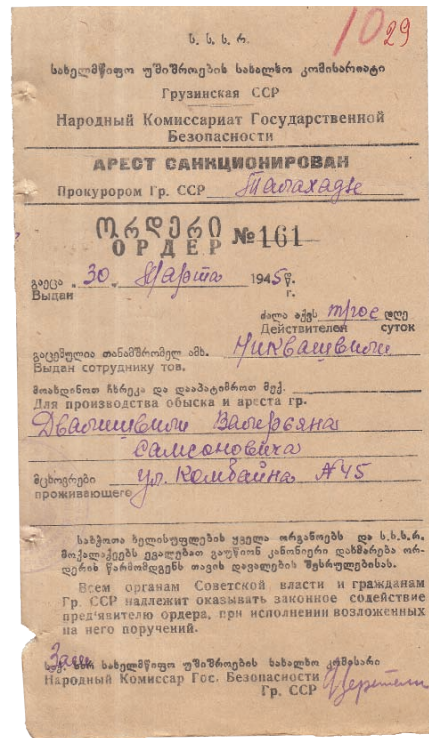 ს. ს. ს. რ.
10 29
სახელმწიფო უშიშროების სახალხო კომისარიატი
Грузинская ССР
Народный Комиссариат Государственной
Безопасности
АРЕСТ САНКЦИОНИРОВАН
Прокурором Гр. ССР Талахадзе
ორდერი
ОРДЕР №161
გაეცა „30" Марта 1945 წ.
Выдан г.
ძალა აქვს трое დღე
Действителен суток
გაცემულია თანამშრომელ ამხ. Никвашвили
Выдан сотруднику тов.
მოახდინოთ ჩხრეკა და დააპატიმროთ მოქ.
Для производства обыска и ареста гр.
Двалишвили Валерьяна
Самсоновича
მცხოვრები ул. Комбайна №45
проживающего
საბჭოთა ხელისუფლების ყველა ორგანოებს და ს.ს.ს.რ.
მოქალაქეებს ევალებათ გაუწიონ კანონიერი დახმარება ორ-
დერის წარმომდგენს თავის დავალების შესრულებისას.
Всем органам Советской власти и гражданам
Гр. ССР надлежит оказывать законное содействие
пред'явителю ордера, при исполнении возложенных
на него поручений.
Зам
საქ. სსრ სახელმწიფო უშიშროების სახალხო კომისარი
Народный Комиссар Гос. Безопасности
Гр. ССР